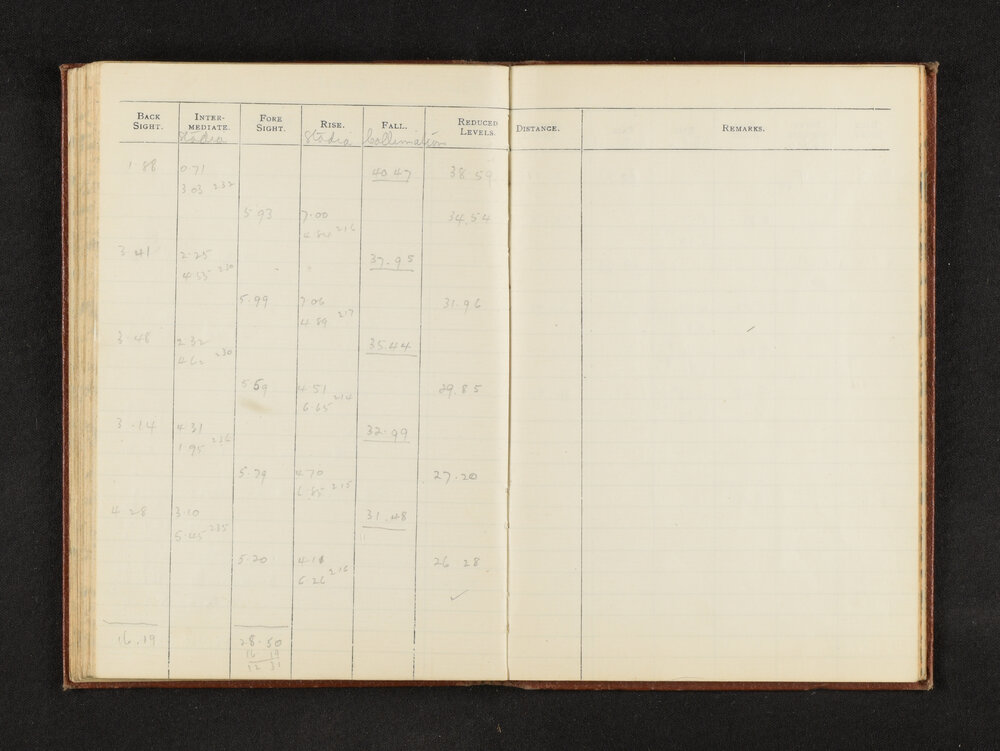 BACK SIGHT. INTER-MEDIATE. FORE SIGHT. RISE. FALL. REDUCED LEVELS. DISTANCE. REMARKS.
Stadia Stadia Collimation
1 88 0.71 40.47 38 59
3 03 232
5 93 7.00 34.54
4 84 216
3 41 2.25 37.95
4 55 230
5.99 7 06 31.96
4 89 217
3.48 2 32 35.44
4 62 230
5 59 4 51 29.85
6.65 214
3.14 4 31 32.99
1 95 236
5.79 4 70 27.20
6.85 215
4 28 3.10 31.48
5.45 235
5.20 4.11 26 28
6 26 215
16.19 28.50
16 19
12 31